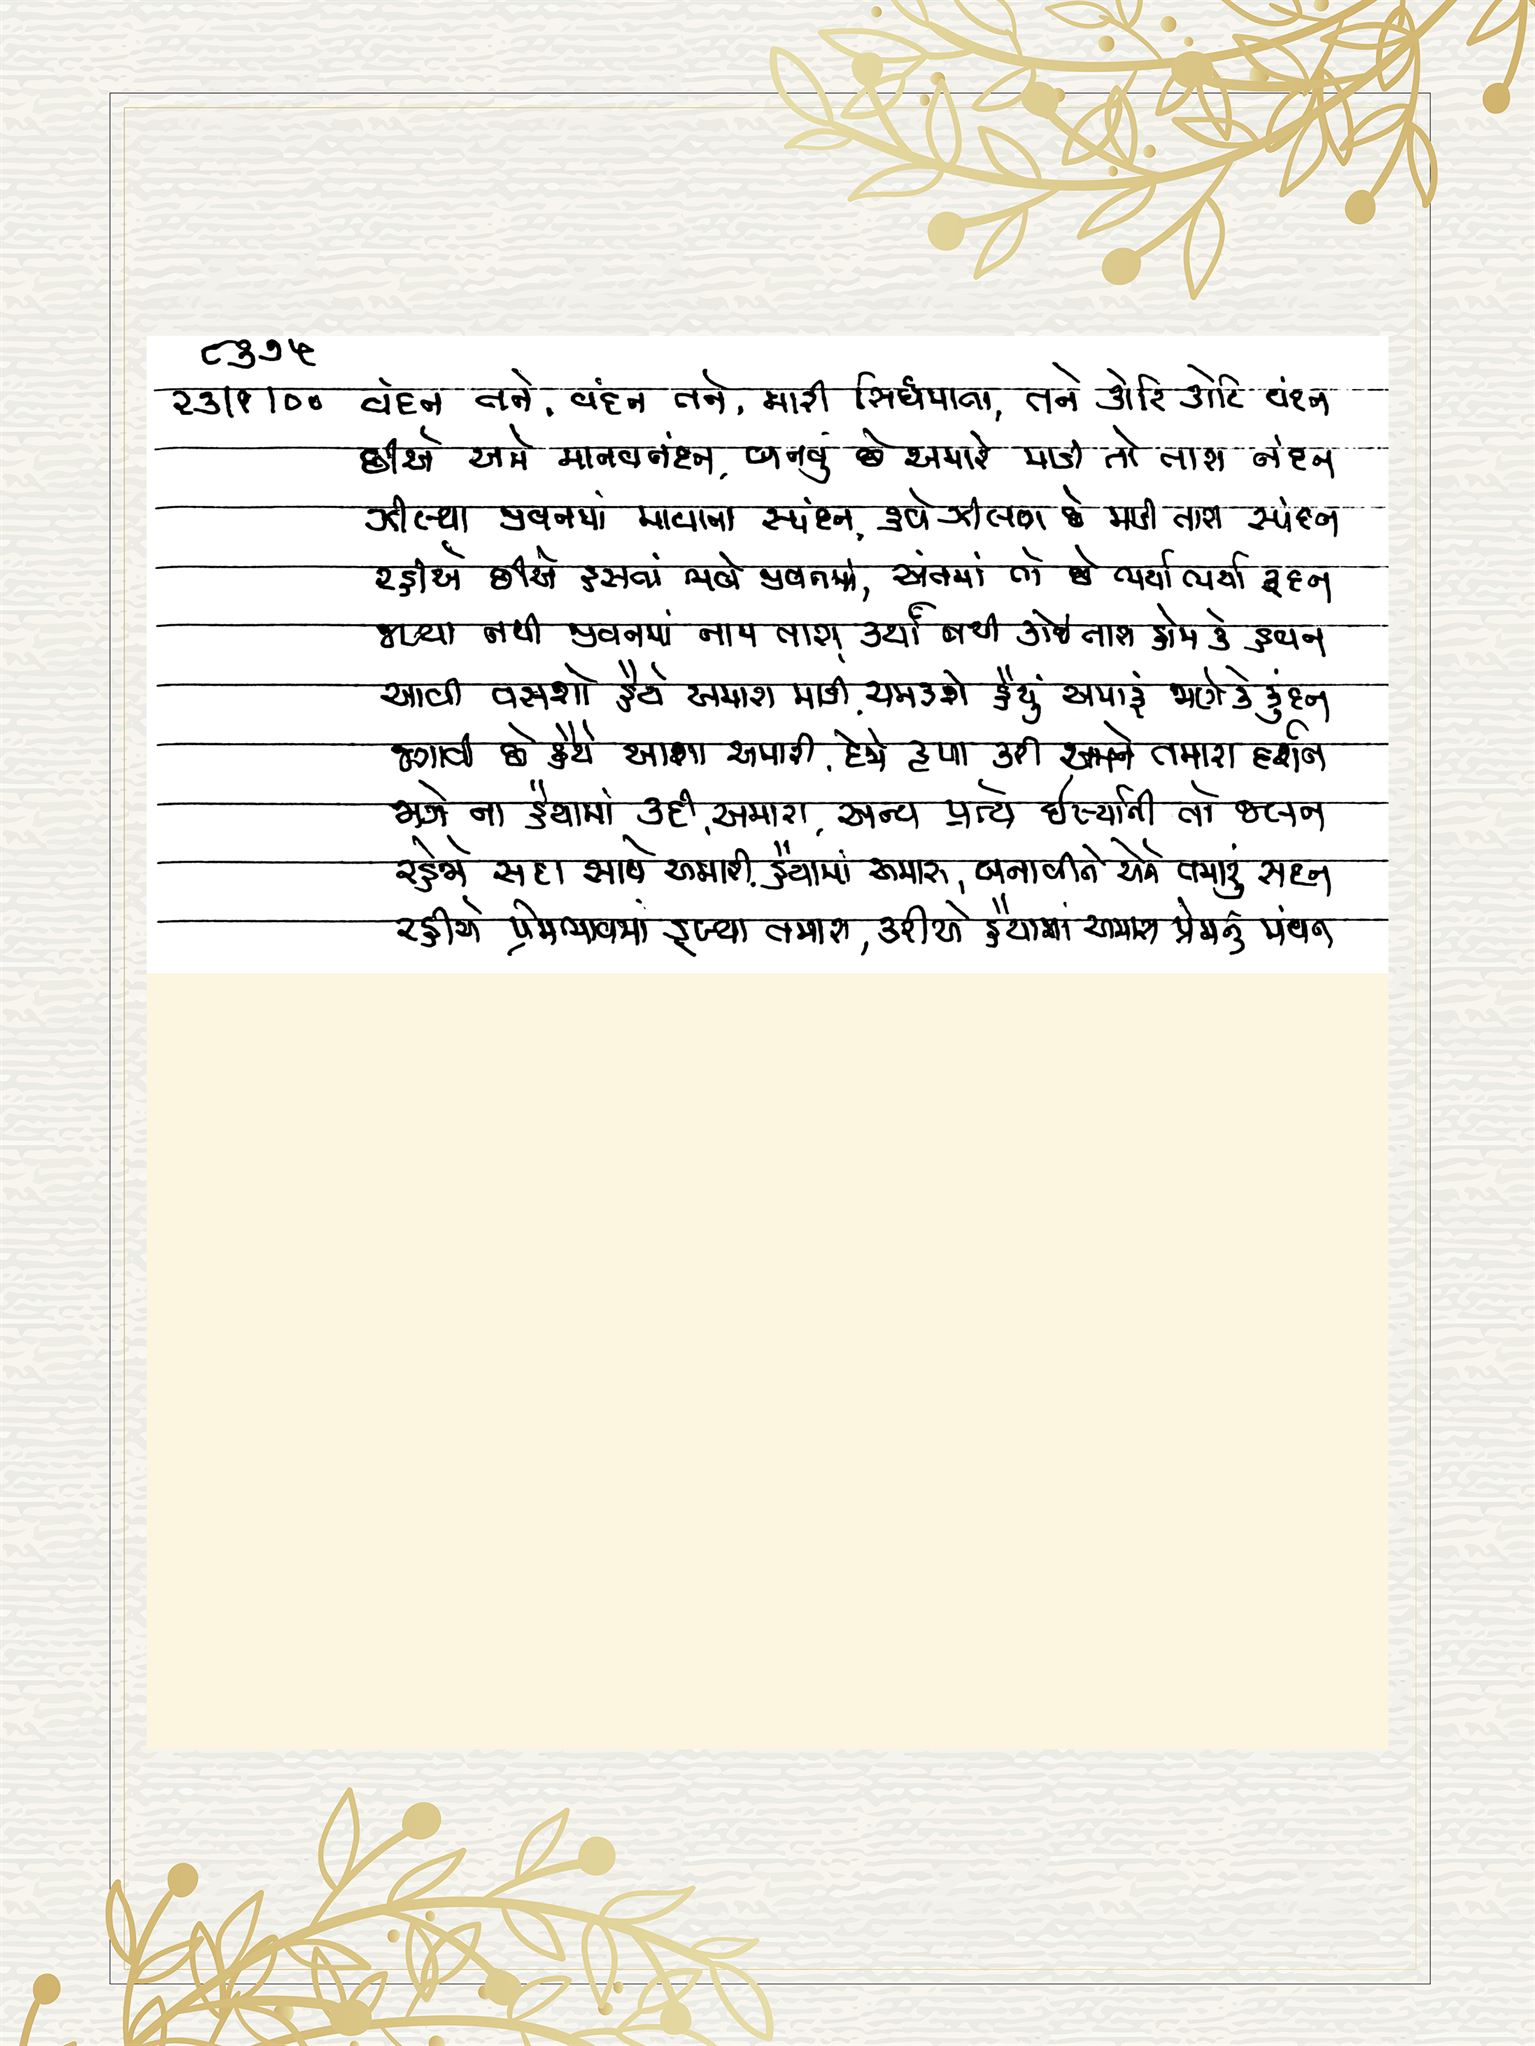 ૮૩૭૫
૨૩/૧/૦૦ વંદન તને, વંદન તને, મારી સિધ્ધમાતા, તને કોટિ કોટિ વંદન
છીએ અમે માનવનંદન, બનવું છે અમારે માડી તો તારા નંદન
ઝીલ્યા જીવનમાં માયાના સ્પંદન, હવે ઝીલવા છે માડી તારા સ્પંદન
રહીએ છીએ હસતાં ભલે જીવનમાં, અંતમાં તો છે ભર્યા ભર્યા રૂદન
જપ્યા નથી જીવનમાં નામ તારા, કર્યા નથી કોઈ તારા હોમ કે હવન
આવી વસશો હૈયે અમારા માડી, ચમકશે હૈયું અમારૂં જાણે કે કુંદન
જાગી છે હૈયે આશા અમારી, દેજે કૃપા કરી અમને તમારા દર્શન
જાગે ના હૈયામાં કદી અમારા, અન્ય પ્રત્યે ઈર્ષ્યાની તો જલન
રહેજે સદા સાથે અમારી હૈયામાં અમારા, બનાવીને એને તમારું સદન
રહીએ પ્રેમભાવમાં ડૂબ્યા તમારા, કરીએ હૈયામાં અમારા પ્રેમનું મંથન